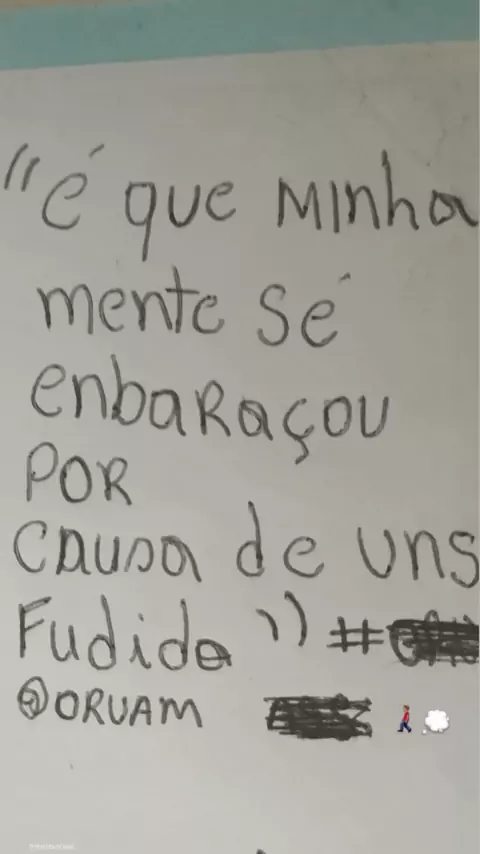 "é que minha
mente sé
enbaraçou
POR
causa de uns
Fudido" #
@ORUAM